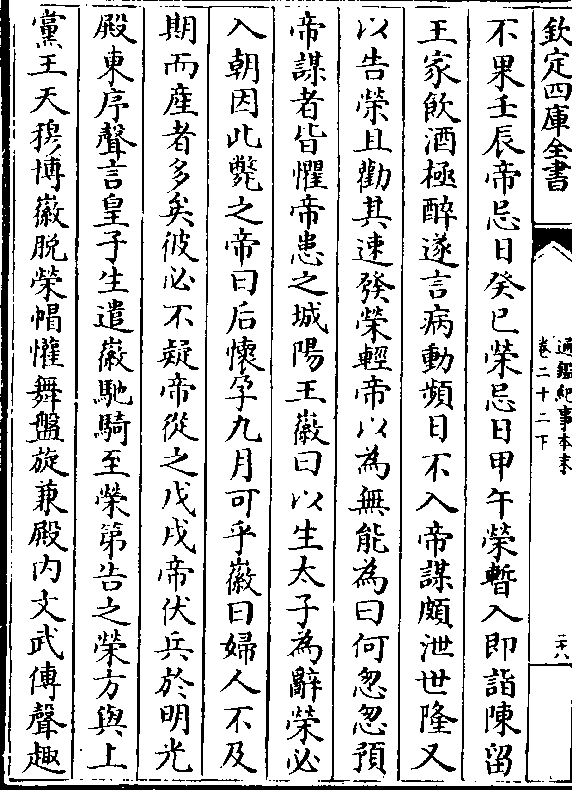 欽定四庫全書
通鑑紀事本末
卷二十二下
二十八
不果壬辰帝忌日癸巳榮忌日甲午榮暫入即詣陳留
王家飲酒極醉遂言病動頻日不入帝謀頗泄世隆又
以告榮且勸其速發榮輕帝以為無能為曰何忽忽預
帝謀者皆懼帝患之城陽王徽曰以生太子為辭榮必
入朝因此斃之帝曰后懷孕九月可乎徽曰婦人不及
期而產者多矣彼必不疑帝從之戊戌帝伏兵於明光
殿東序聲言皇子生遣徽馳騎至榮第告之榮方與上
黨王天穆博徽脫榮帽懽舞盤旋兼殿内文武傳聲趣